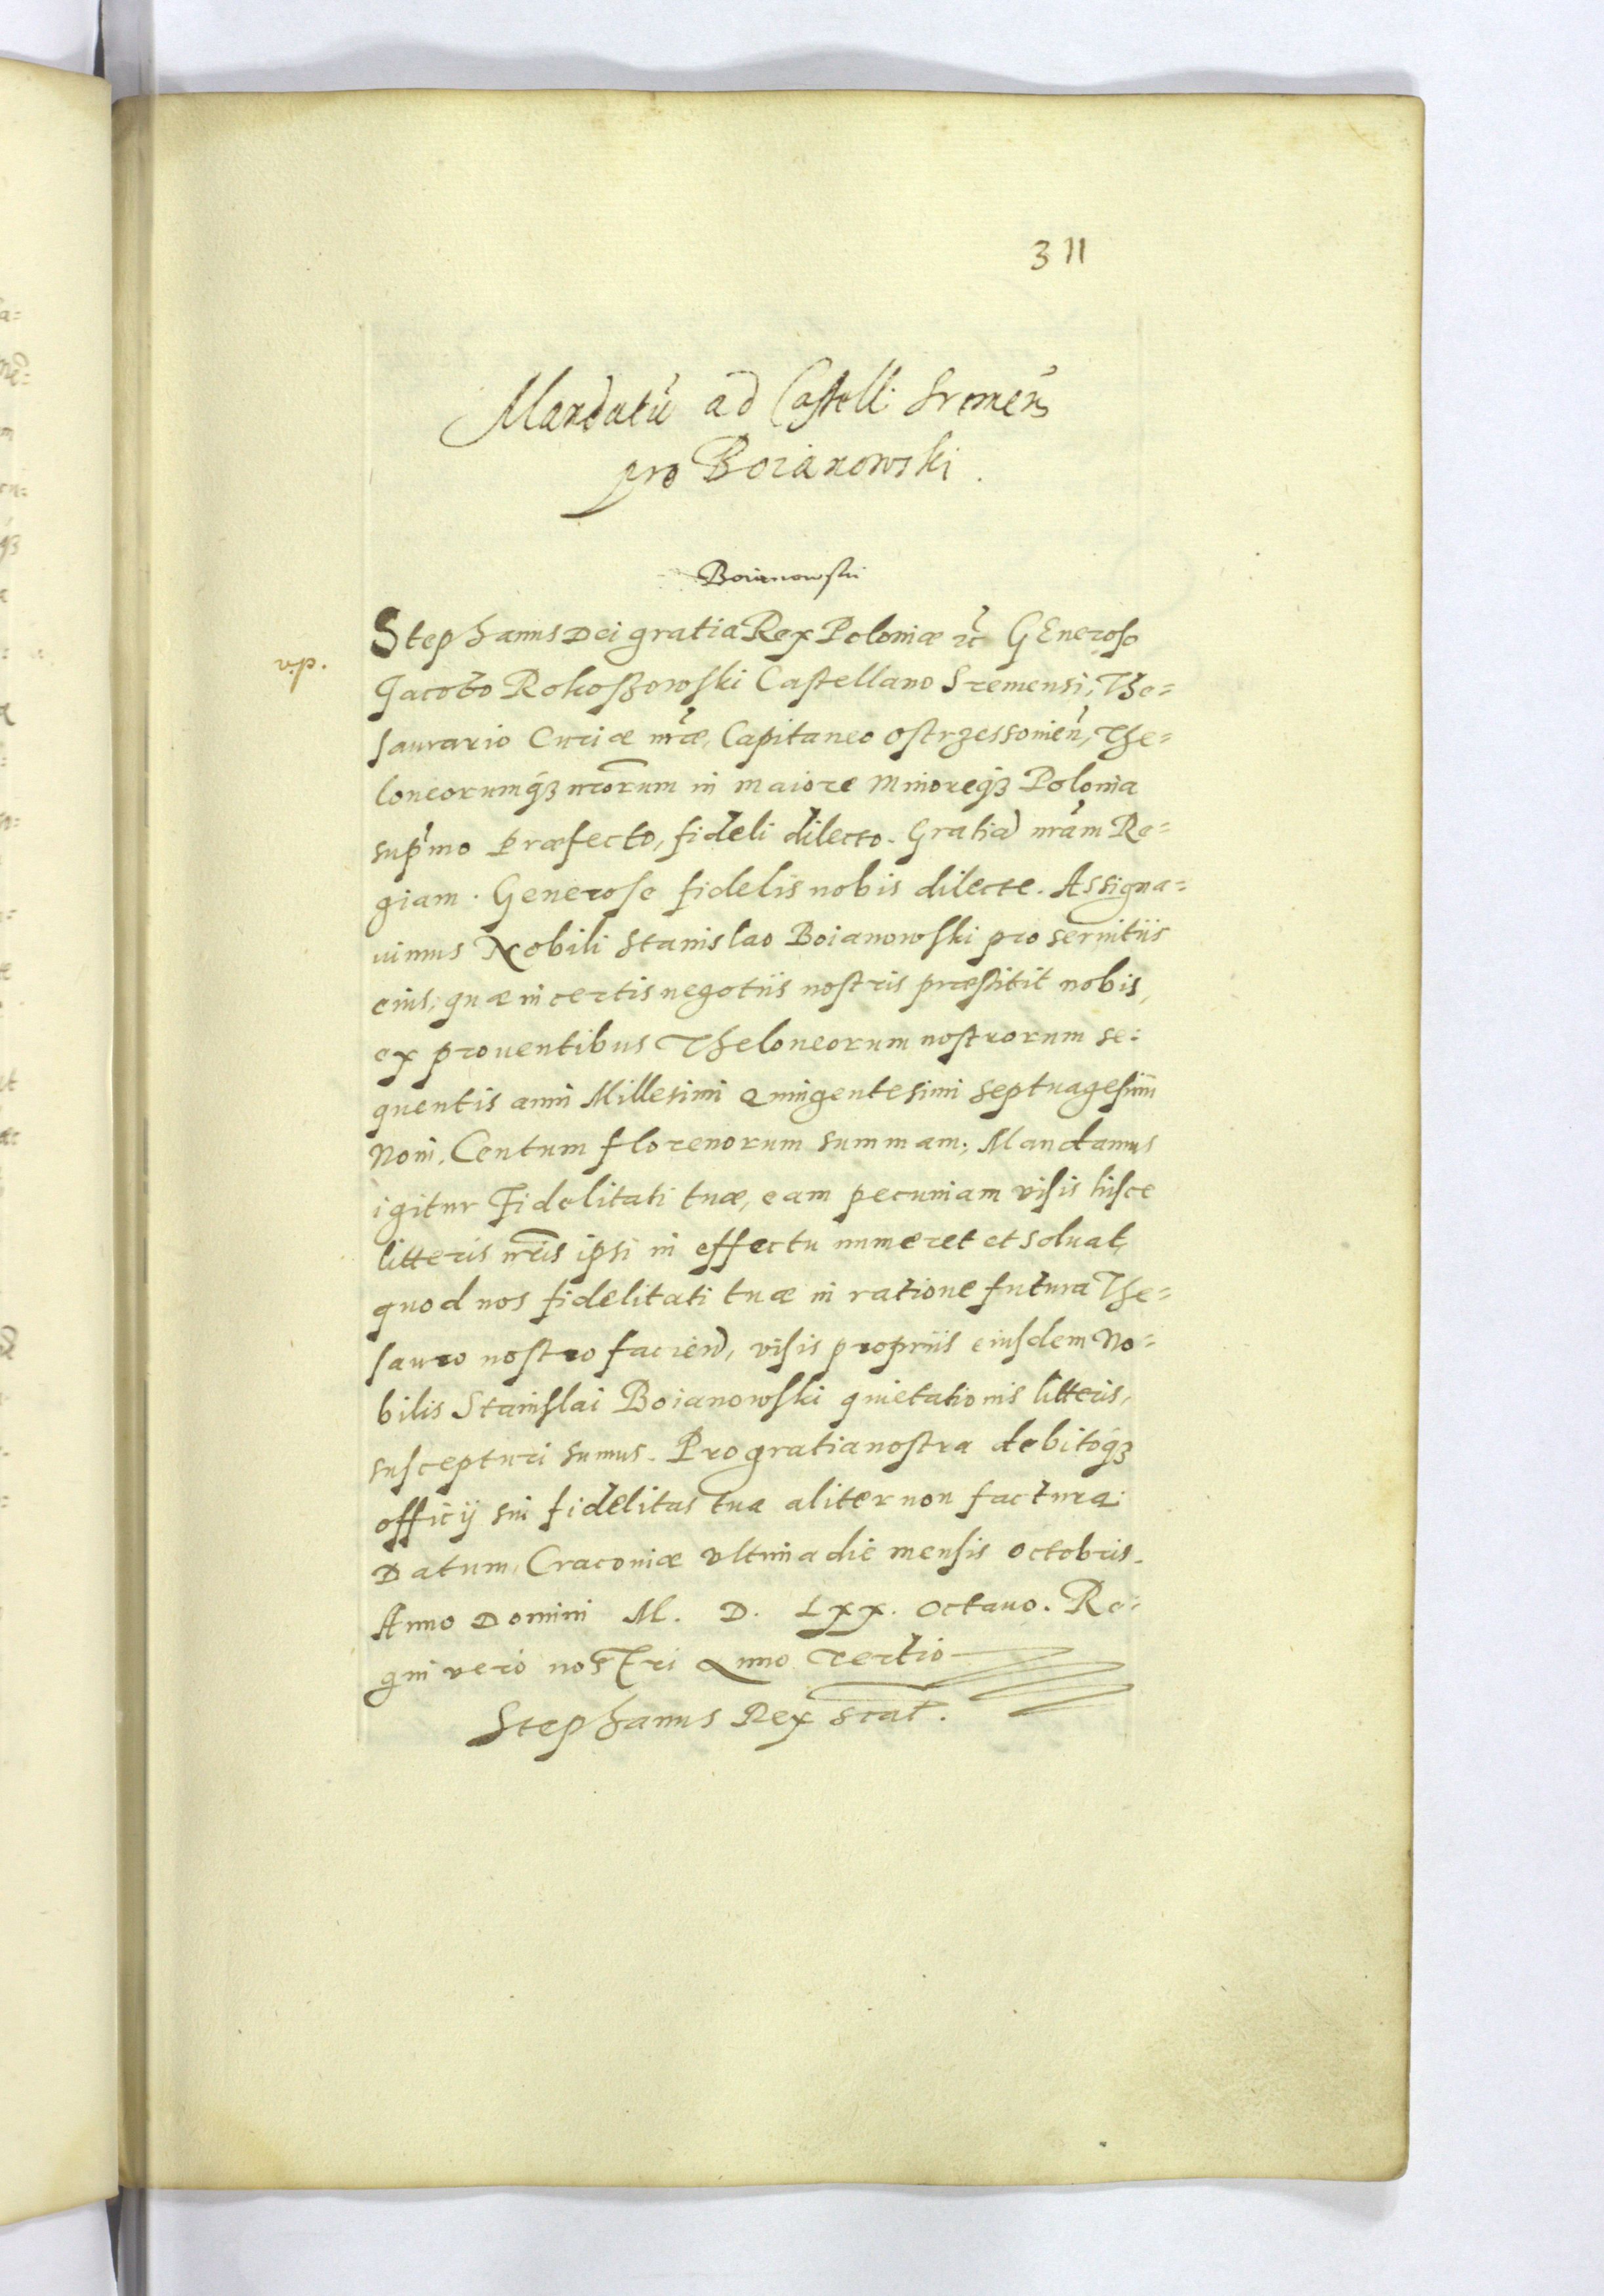 311
Mandatū ad Castell: Sremen̄s
pro Boianowski.
Boianowski
v.p.
Stephanus Dei gratia Rex Poloniæ etc̃ GEneroso
Jacobo Rokoszowski Castellano Sremensi, The=
saurario Curiæ nr̃æ, Capitaneo ostrzessonien̄, The=
loneorumq́ꝫ nr̃orum in maiore minoreq́ꝫ Polonia
sup̃mo Præfecto, fideli dilecto. Gratiā nr̃am Re=
giam. Generose fidelis nobis dilecte. Assigna=
uimus Nobili Stanislao Boianowski pro seruitiis
eius, quæ in certis negotiis nostris præstitit nobis,
ex prouentibus Theloneorum nostrorum se=
quentis anni Millesimi Quingentesimi septuagesimi
Noni, Centum florenorum summam; Mandamus
igitur Fidelitati tuæ, eam pecuniam visis hisce
litteris nr̃is ipsi in effectu numeret et soluat,
quod nos fidelitati tuæ in ratione futura The=
sauro nostro facien̄, visis propriis eiusdem No=
bilis Stanislai Boianowski quietationis litteris,
suscepturi sumus. Pro gratia nostra debitoq́ꝫ
officij sui fidelitas tua aliter non factura.
Datum, Cracouiæ vltima die mensis octobris.
Anno Domini M. D. Lxx. octauo. Re=
gni vero nostri Anno Tertio
Stephanus Rex scat.